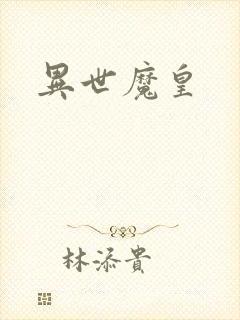 異世魔皇
林添貴